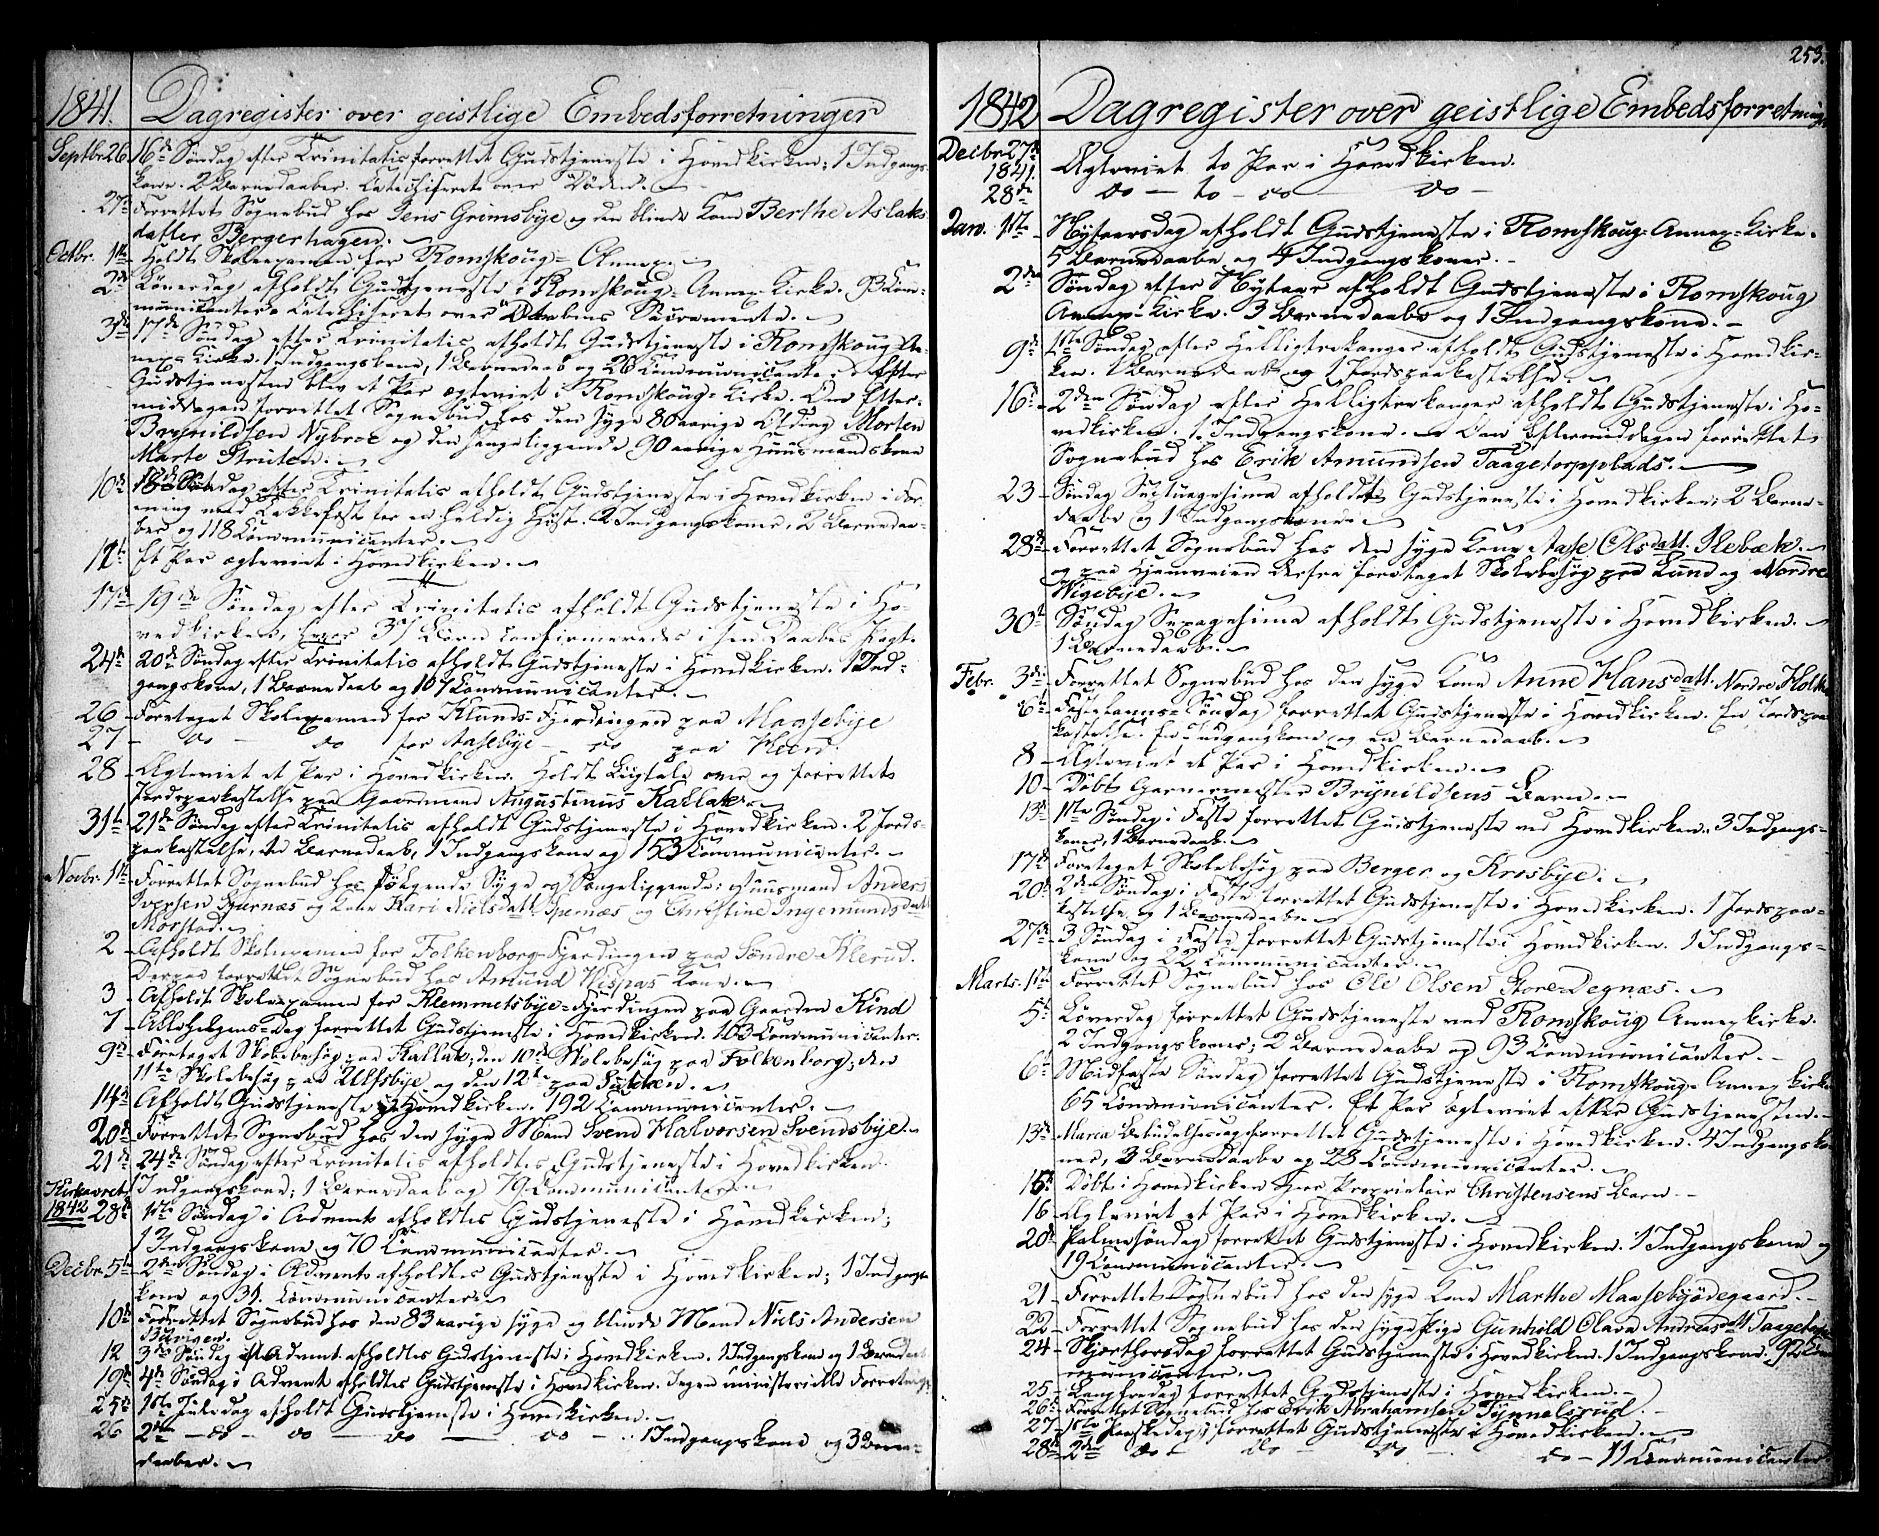 1841. Dagregister over geistlige Embedsforretninger
Septbr. 26 16de Søndag efter Trinitatis forrettet Gudstjeneste i Hovedkirken; 1 Indgangs-
kone. 2 Barnedaaber. Catechiseret over Døden.
27de Forrettet Sognebud hos Jens Grimsbye og den blinde Kone Berthe Aslaks-
datter Bergerhagen.
Octbr. 1ste Holdt Skoleexamen for Romskoug-Annex.
2den Løverdag afholdt Gudstjeneste i Romskoug-Annex-Kirke. 93 Com-
municanter. Catechiseret over Daabens Sacramente.
3die 17de Søndag efter Trinitatis afholdt Gudstjeneste i Romskoug An-
nex-Kirke. 1 Indgangskone, 1 Barnedaab og 26 Communicanter. Efter
Gudstjenesten blev et Par ægteviet i Romskoug-Kirke. Om Efter-
middagen forrettet Sognebud hos den syge 80 aarige Olding Morten
Brynildsen Nybroe og den sengeliggende 90 aarige Huusmandskone
Marte Struten.
10de 18de Søndag efter Trinitatis afholdt Gudstjeneste i Hovedkirken i For-
ening med Takkefest for en heldig Høst. 2 Indgangskoner, 2 Barnedaa-
ber og 118 Communicanter.
12t Et Par ægteviet i Hovedkirken.
17de 19de Søndag efter Trinitatis afholdt Gudstjeneste i Ho-
vedkirken, hvor 37 Børn confirmeredes i sin Daabes Pagt.
24de 20de Søndag efter Trinitatis afholdt Gudstjeneste i Hovedkirken. 1 Ind-
gangskone, 1 Barnedaab og 107 Communicanter.
26 Foretaget Skoleexamen for Klunds-Fjerdingen paa Maasebye
27 do do for Aasebye do paa Heed.
28 Ægteviet et Par i Hovedkirken. Holdt Liigtale over og forrettet
Jordspaakastelse paa Gaardmand Augustinus Kallak.
31te 21de Søndag efter Trinitatis afholdt Gudstjeneste i Hovedkirken. 2 Jords-
paakastelse, en Barnedaab, 1 Indgangskone og 153 Communicanter.
Novbr. 1ste Forrettet Sognebud hos følgende Syge og Sengeliggende: Huusmand Anders
Iversen Buernæs og Kone Kari Nielsdatt. Spernæs og Christine Ingemundsdatt.
Morstad.
2 Afholdt Skoleexamen for Folkenborg-Fjerdingen paa Søndre Klerud.
Derpaa forrettet Sognebud hos Amund Wispas Kone.
3 Afholdt Skoleexamen for Klemmetsbye-Fjerdingen paa Gaarden Kind
7 Allehelgens-Dag forrettet Gudstjeneste i Hovedkirken. 103 Communicanter.
9de Foretaget Skolebesøg paa Kallak, den 10de Skolebesøg paa Folkenborg, den
11te Skolebesøg paa Ulfsbye og den 12te paa Sukken.
14de Afholdt Gudstjeneste i Hovedkirken. 192 Communicanter.
20de Forrettet Sognebud hos den syge Mand Svend Halvorsen Svendsbye.
21de 24de Søndag efter Trinitatis afholdtes Gudstjeneste i Hovedkirken.
1 Indgangskone; 1 Barnedaab og 79 Communicanter.
Kirkeaaret
1842 28de 1ste Søndag i Advent afholdtes Gudstjeneste i Hovedkirken;
1 Indgangskone og 70 Communicanter.
Decbr. 5te 2den Søndag i Advent afholdtes Gudstjeneste i Hovedkirken; 1 Indgangs-
kone og 31. Communicanter.
10de Forrettet Sognebud hos den 83 aarige syge og blinde Mand Niels Andersen
Buvigen.
12 3die Søndag i Advent afholdtes Gudstjeneste i Hovedkirken. 1 Indgangskone og 1 Barnedaab
19de 4de Søndag i Advent afholdtes Gudstjeneste i Hovedkirken. Ingen ministerielle Forretninger
25de 1ste Juledag afholdt Gudstjeneste i Hovedkirken.
26 2den do do do do 1 Indgangskone og 3 Barne-
daaber.
253.
1842 Dagregister over geistlige Embedsforretninger
Decbr. 27de
1841. Ægteviet to Par i Hovedkirken.
28de do to do do
Janv. 1ste Nytaarsdag afholdt Gudstjeneste i Romskoug-Annex-Kirke.
5 Barnedaabe og 4 Indgangskoner.
2den Søndag efter Nytaar afholdt Gudstjeneste i Romskoug
Annex-Kirke. 3 Barnedaabe og 1 Indgangskone.
9de 1ste Søndag efter Helligtrekonger afholdt Gudstjeneste i Hovedkir-
ken. 1 Barnedaab og 1 Jordspaakastelse.
16de 2den Søndag efter Helligtrekonger afholdt Gudstjeneste i Ho-
vedkirken. 1 Indgangskone. Om Eftermiddagen forrettet
Sognebud hos Erik Amundsen Taagetorpplads.
23 Søndag Septuagesima afholdt Gudstjeneste i Hovedkirken; 2 Barne-
daabe og 1 Indgangskone.
28de Forrettet Sognebud hos den syge Kone Aase Olsdatt. Ilebæk.
og paa Hjemveien derfra foretaget Skolebesøg paa Lund og Nordre
Wigebye.
30te Søndag Sexagesima afholdt Gudstjeneste i Hovedkirken.
1 Barnedaab.
Febr. 3die Forrettet Sognebud hos den syge Kone Anne Hansdatt. Nordre Holt
6te Fastelavns-Søndag forrettet Gudstjeneste i Hovedkirken. En Jordspaa-
kastelse. En Indgangskone og en Barnedaab.
8 Ægteviet et Par i Hovedkirken.
10 Døbt Garvermester Brynildsens Barn.
13de 1ste Søndag i Faste forrettet Gudstjeneste ved Hovedkirken. 3 Indgangs-
koner, 1 Barnedaab.
17de Foretaget Skolebesøg paa Berger og Krosbye.
20de 2den Søndag i Faste forrettet Gudstjeneste i Hovedkirken. 1 Jordspaa-
kastelse og 1 Barnedaab.
27de 3 Søndag i Faste forrettet Gudstjeneste i Hovedkirken. 1 Indgangs-
kone og 22 Communicanter.
Marts. 1ste Forrettet Sognebud hos Ole Olsen Store-Degnæs.
5te Løverdag forrettet Gudstjeneste ved Romskoug Annexkirke.
2 Indgangskoner; 2 Barnedaabe og 93 Communicanter.
6te Midfaste Søndag forrettet Gudstjeneste i Romskoug-Annex kirke
65 Communicanter. Et Par ægteviet efter Gudstjenesten.
13de Mariæ Bebudelsesdag forrettet Gudstjeneste i Hovedkirken. 4 Indgangsko-
ner, 3 Barnedaabe og 23 Communicanter.
15de Døbt i Hovedkirken Herr Proprietair Christensens Barn.
16 Ægteviet et Par i Hovedkirken.
20de Palmesøndag forrettet Gudstjeneste i Hovedkirken. 1 Indgangskone og
19 Communicanter.
21 Forrettet Sognebud hos den syge Kone Marthe Maasebyødegaard.
22 Forrettet Sognebud hos den syge Pige Gunhild Olava Andreasdatt Taagetorp
24 Skjærthorsdag forrettet Gudstjeneste i Hovedkirken. 1 Indgangskone. 92 Com-
municanter.
25 Langfredag forrettet Gudstjeneste i Hovedkirken.
26de Forrettet Sognebud hos Erik Abrahamsen Tynnelsrud.
27 1ste Paaskedag forrettet Gudstjeneste i Hovedkirken.
28de 2den do do do do 11 Communicanter.